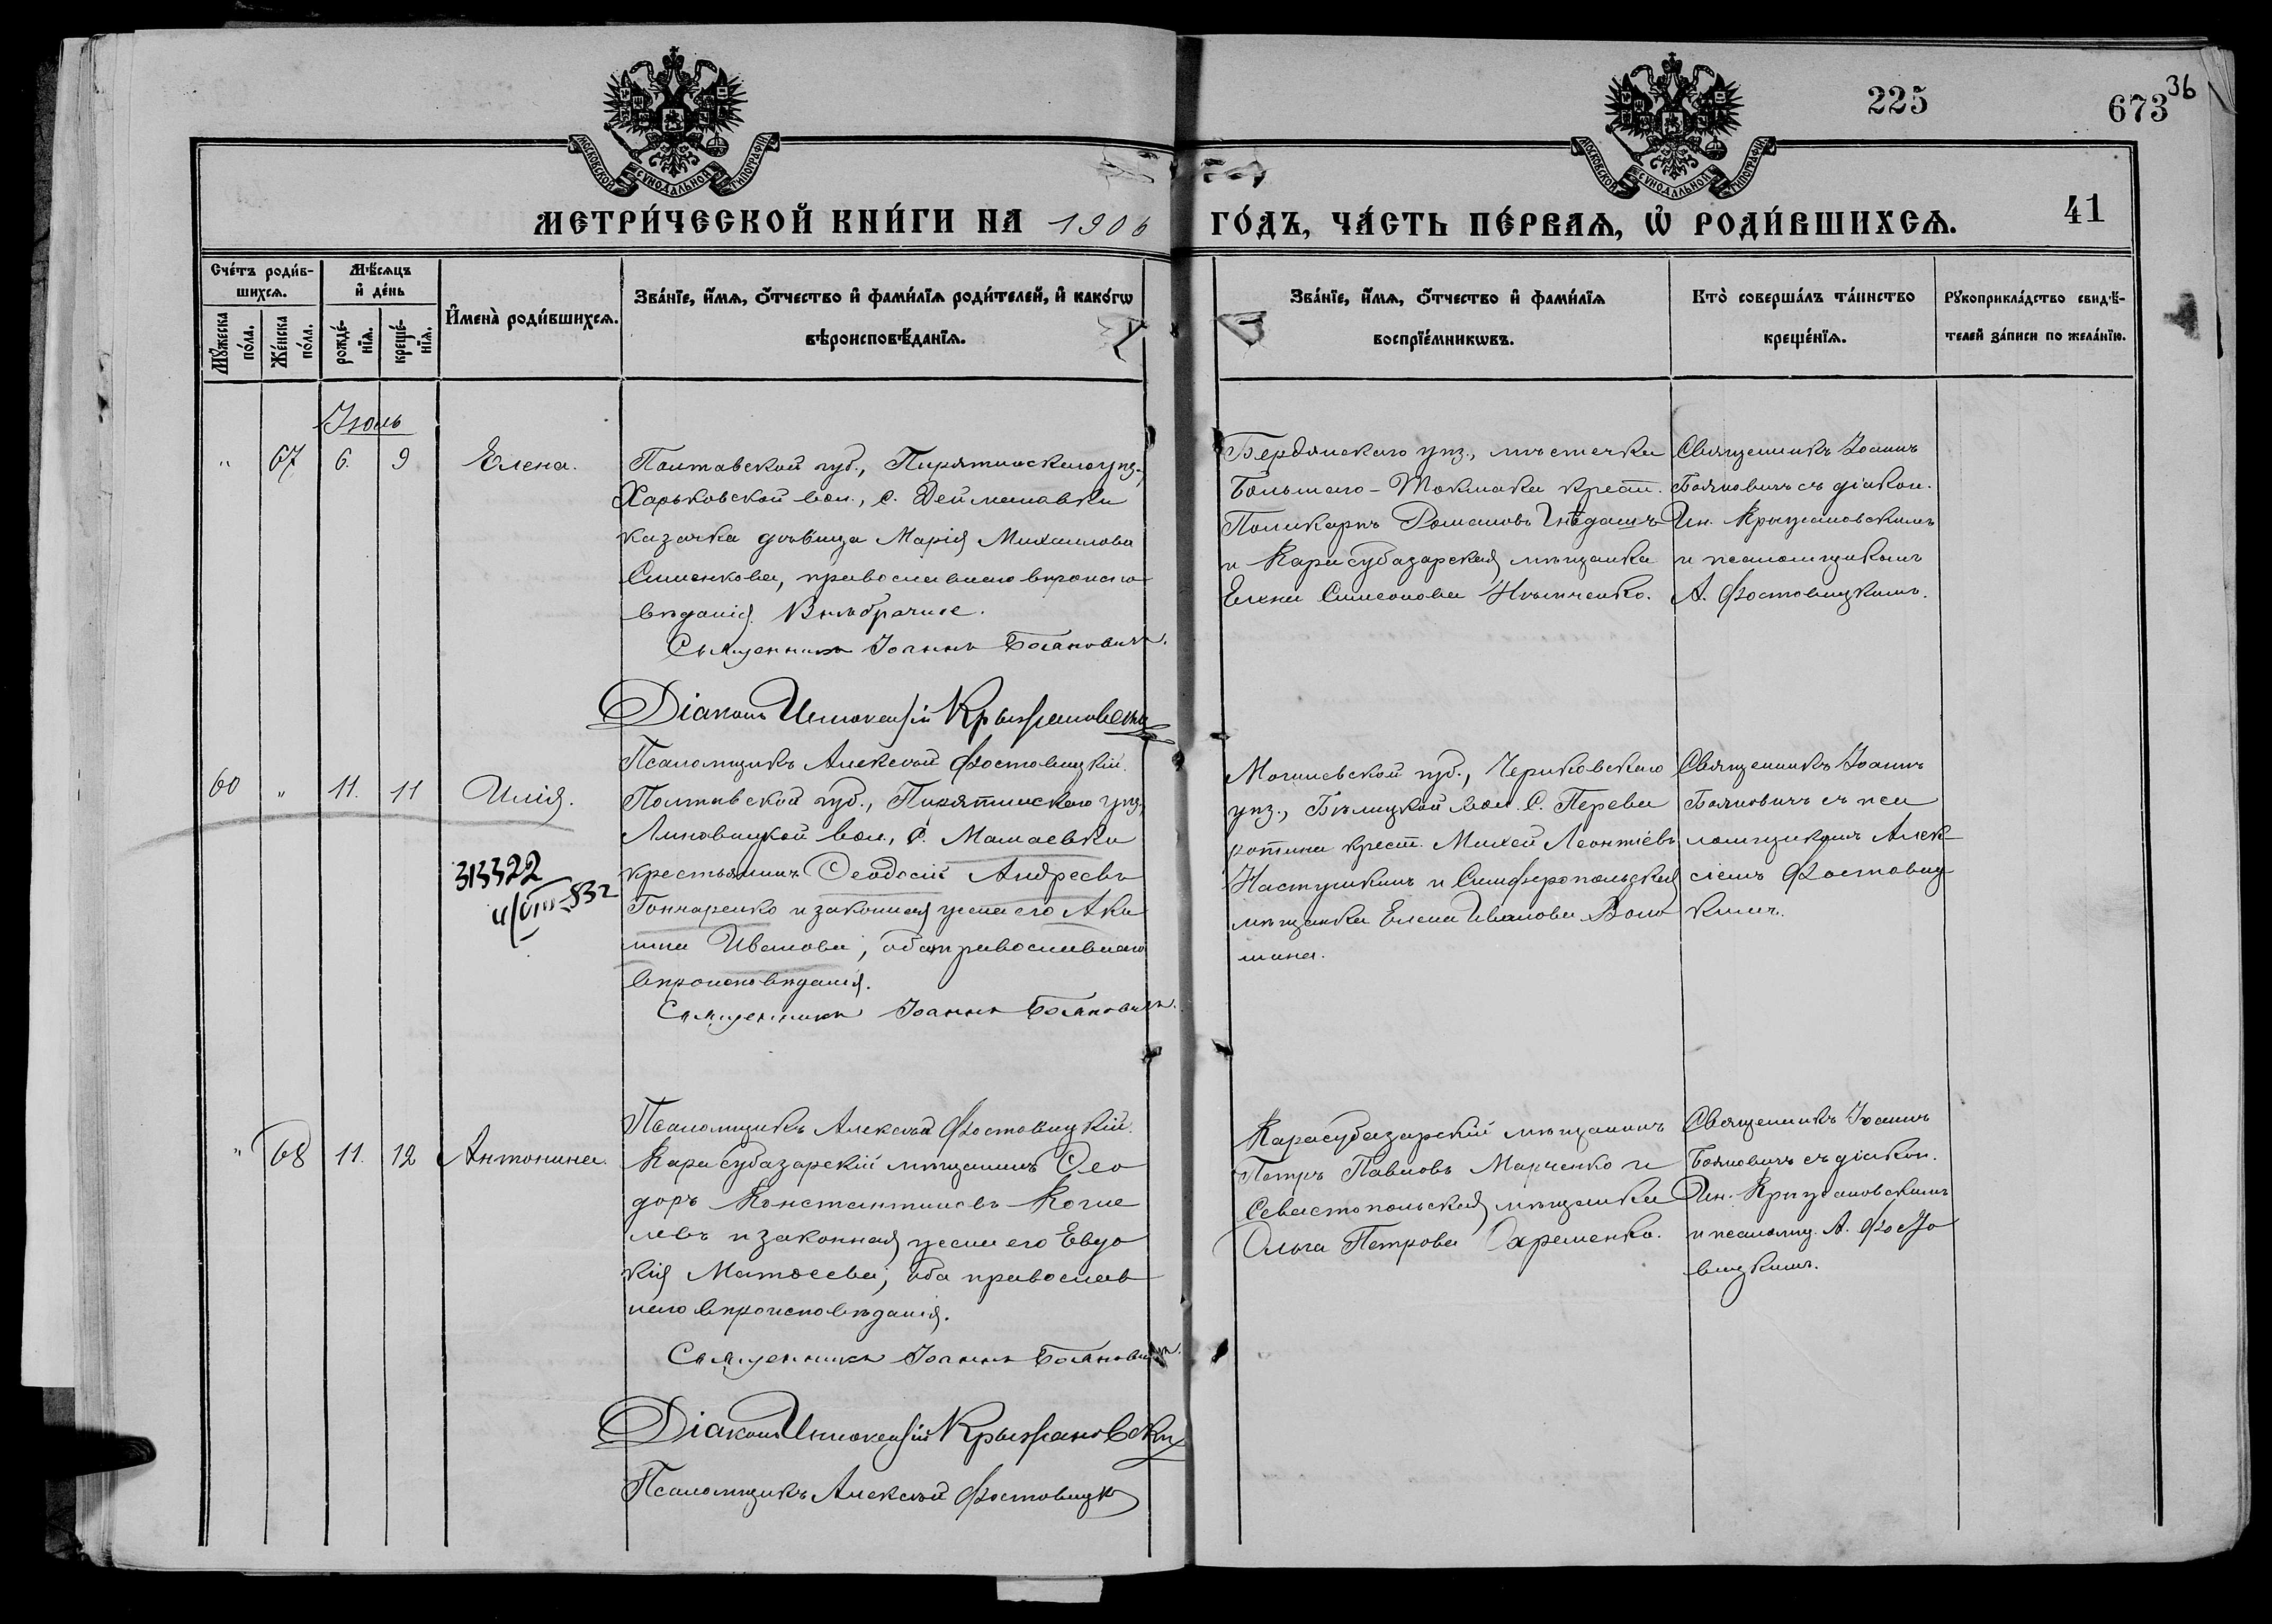 225
673
36
МОСКОВСКОЙ СѴНОДАЛЬНОЙ ТИПОГРАФІИ
МОСКОВСКОЙ СѴНОДАЛЬНОЙ ТИПОГРАФІИ
МЕТРИ́ЧЕСКОЙ КНИ́ГИ НА 1906 ГО́ДЪ, ЧА́СТЬ ПЕ́РВАѦ, Ѡ҆ РОДИ́ВШИХСѦ.
41
Сче́тъ роди́в-
шихсѧ.
Мꙋ́жеска по́ла.
Же́нска по́ла.
Мѣ́сѧцъ
и҆ де́нь
рожде́-
нїѧ.
креще́-
нїѧ.
И҆мена̀ роди́вшихсѧ.
Зва́нїе, и҆́мѧ, ѻ҆́тчество и҆ фами́лїѧ роди́телей, и҆ како́гѡ
вѣроисповѣ́данїѧ.
Зва́нїе, и҆́мѧ, ѻ҆́тчество и҆ фами́лїѧ
воспрїе́мникѡвъ.
Кто̀ соверша́лъ та́инство
креще́нїѧ.
Рꙋкоприкла́дство свидѣ́-
телей за́писи по жела́нїю.
Іюль
" 67 6. 9 Елена.
Полтавской губ., Пирятинскаго уѣз.,
Харьковской вол., с. Деймановки
казачка дѣвица Марія Михаилова
Симонкова, православнаго вѣроиспо-
вѣданія. Внѣбрачные.
Священникъ Іоаннъ Бояновичъ.
Діаконъ Иннокентій Крыжановскій
Псаломщикъ Алексѣй Фостовицкій.
Бердянскаго уѣз., мѣстечка
Большаго-Токмака крест.
Поликарпъ Романовъ Гнѣдашъ
и Карасубазарская мѣщанка
Елена Симеонова Нѣмченко.
Священникъ Іоаннъ
Бояновичъ съ діакон.
Ин. Крыжановскимъ
и псаломщикомъ
А. Фостовицкимъ.
60 " 11. 11 Илія.
313322
Полтавской губ., Пирятинскаго уѣз.,
Линовицкой вол., с. Мамаевки
крестьянинъ Ѳеодосій Андреевъ
Гончаренко и законная жена его Аки
лина Иванова, оба православнаго
вѣроисповѣданія.
Священникъ Іоаннъ Бояновичъ.
Псаломщикъ Алексѣй Фостовицкій.
Могилевской губ., Чериковскаго
уѣз., Бѣлицкой вол. с. Перева
лотина крест. Михей Леонтіевъ
Настушкинъ и Симферопольская
мѣщанка Елена Иванова Воло
шина.
Священникъ Іоаннъ
Бояновичъ съ пса
ломщикомъ Алек-
сіемъ Фостовиц
кимъ.
" 68 11. 12 Антонина.
Карасубазарскій мѣщанинъ Ѳео
доръ Константиновъ Коше
левъ и законная жена его Евдо
кія Матѳеева; оба православ
наго вѣроисповѣданія.
Священникъ Іоаннъ Бояновичъ.
Діаконъ Иннокентій Крыжановскій
Псаломщикъ Алексѣй Фостовицкій
Карасубазарскій мѣщанинъ
Петръ Павловъ Марченко и
Севастопольская мѣщанка
Ольга Петрова Охременко.
Священникъ Іоаннъ
Бояновичъ съ діакон.
Ин. Крыжановскимъ
и псаломщ. А. Фосто
вицкимъ.